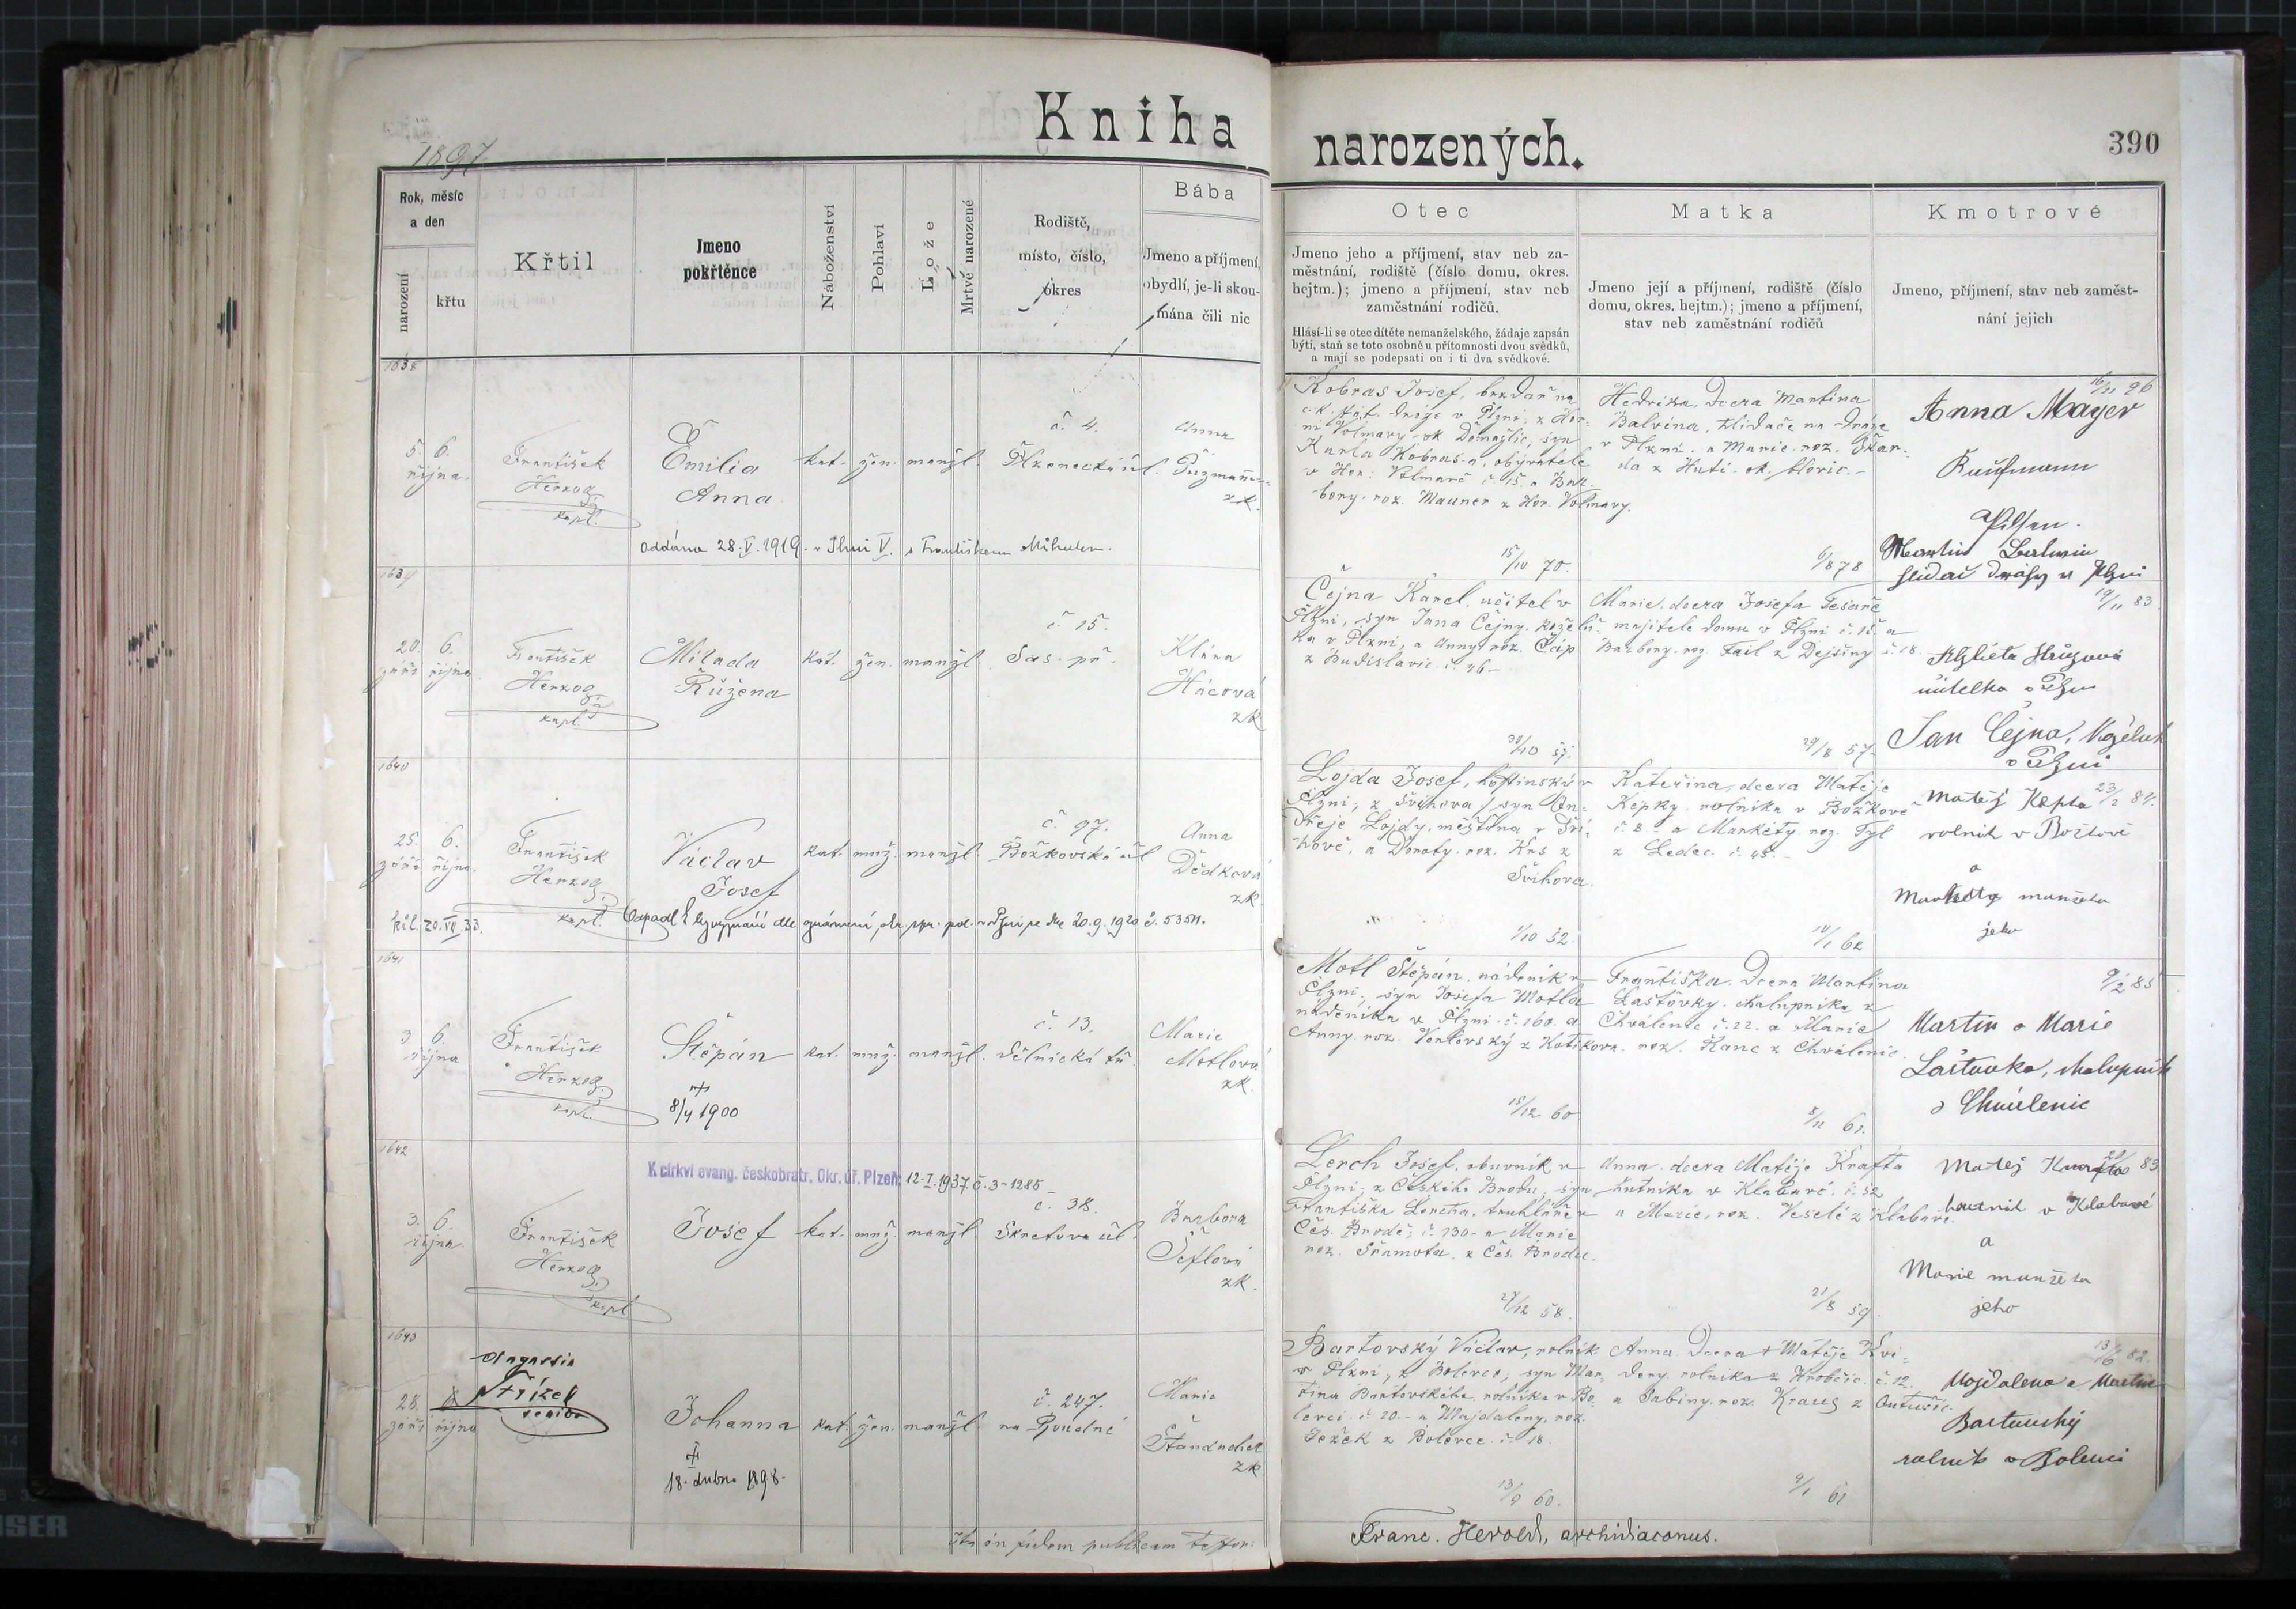 Kniha
narozených.
390
1897
Rok, měsíc
a den
narození
křtu
Křtil
Jmeno
pokřtěnce
Náboženství
Pohlaví
Lože
Mrtvě narozené
Rodiště,
místo, číslo,
okres
Bába
Jmeno a příjmení,
obydlí, je-li skou-
mána čili nic
Otec
Jmeno jeho a příjmení, stav neb za-
městnání, rodiště (číslo domu, okres.
hejtm.); jmeno a příjmení, stav neb
zaměstnání rodičů.
Hlásí-li se otec dítěte nemanželského, žádaje zapsán
býti, staň se toto osobně u přítomnosti dvou svědků,
a mají se podepsati on i ti dva svědkové.
Matka
Jmeno její a příjmení, rodiště (číslo
domu, okres. hejtm.); jmeno a příjmení,
stav neb zaměstnání rodičů
Kmotrové
Jmeno, příjmení, stav neb zaměst-
nání jejich
1638
5. 6.
října
František
Herzog
kapl.
Emilia
Anna
kat. žen. manžl.
č. 4.
Plzenecká úl.
Anna
zk.
oddána 28. V. 1919
Kobras Josef,
v Plzni, z Hor-
ní Volmavy ok Domažlic, syn
Karla Kobrasa, obyvatele
v Hor. Volmavě č. 15. a Bar-
bory roz. Mauner z Hor. Volmavy.
15/10 70.
Hedvika, dcera Martina
Balvína, hlídače na dráze
v Plzni a Marie roz. Škar-
da z Huti
6/8 78
16/11 96
Anna Mayer
Kaufmann
Pilsen.
Martin
hlídač dráhy v Plzni
1639
20. 6.
září října
František
Herzog
kapl.
Milada
Růžena
kat. žen. manžl.
č. 15.
Sas. př.
Klára
Hácová
zk
Čejna Karel, učitel v
Plzni, syn Jana Čejny, koželu-
ha v Plzni, a Anny roz. Čáp
z Budislavic č. 46 -
30/10 57.
Marie, dcera Josefa Tesaře
majitele domu v Plzni č. 15. a
Barbory roz. Fail z Dejšiny č. 18.
29/8 57
19/11 83.
Alžběta
učitelka v Plzni
Jan Čejna, koželuh
v Plzni
1640
25. 6.
září října.
František
Herzog
kapl.
Václav
Josef
kat. muž. manžl.
č. 97.
Božkovská úl
Anna
Dědková
zk.
20. VII. 33.
20. 9. 1920 č. 53511.
Lojda Josef, hostinský v
Plzni, z Švihova, syn On-
dřeje Lojdy, měštana v Švi-
hově, a Doroty roz. Krs z
Švihova.
1/10 52.
Kateřina, dcera Matěje
Kepky, rolníka v Božkově
č. 8 - a Markéty roz. Tyl
z Ledec č. 45. -
10/1 62
23/2 84.
Matěj Kepka
rolník v Božkově
a
Markéta manželka
jeho
1641
3 6.
října
František
Herzog
kapl.
Štěpán
kat. muž. manžl.
č. 13.
Dělnická tř.
Marie
Motlová
zk.
8/4 1900
Motl Štěpán, nádeník v
Plzni, syn Josefa Motla
nádeníka v Plzni č. 160. a
Anny roz.
15/12 60
Františka, dcera Martina
Laštovky, chalupníka z
Chválenic č. 22. a Marie
roz. Kanc z Chválenic.
5/11 61.
9/2 85
Martin a Marie
Laštovka, chalupník
z Chválenic
1642
K církvi evang. českobratr. Okr. úř. Plzeň: 12-I.1937. č. 3-1285
3. 6.
října
František
Herzog
kapl
Josef
kat. muž. manžl.
č. 38.
Skretova úl.
Barbora
Šeflová
zk.
Lerch Josef, obuvník v
Plzni, z Českého Brodu, syn
Františka Lercha, truhláře v
Čes. Brodě, č. 130 - a Marie
roz. Sramota, z Čes. Brodu.
27/12 58.
Anna, dcera Matěje Krafta
hutníka v Klabavě č. 52
a Marie, roz. Veselé z Klabavi.
21/8 59.
Matěj Krafta 83
hutník v Klabavě
a
Marie manželka
jeho
1643
28. 6.
září října
Johanna
kat. žen. manžl.
č. 247.
na Roudné
Marie
zk
18. dubna 1898.
Bartovský Václav, rolník
v Plzni, z Bolevce, syn Mar-
tina Bartovského, rolníka v Bo-
levci č. 20. - a Majdaleny, roz.
Ježek z Bolevce č. 18.
13/9 60.
Anna, dcera + Matěje Kvi-
dery, rolníka z Hrobčic č. 12.
a Sabiny, roz. Kraus z
4/1 61
13/6 82.
Majdalena a Martin
Bartovský
rolník v Bolevci
Ita in fidem publicam testor:
Franc. Herold, archidiaconus.